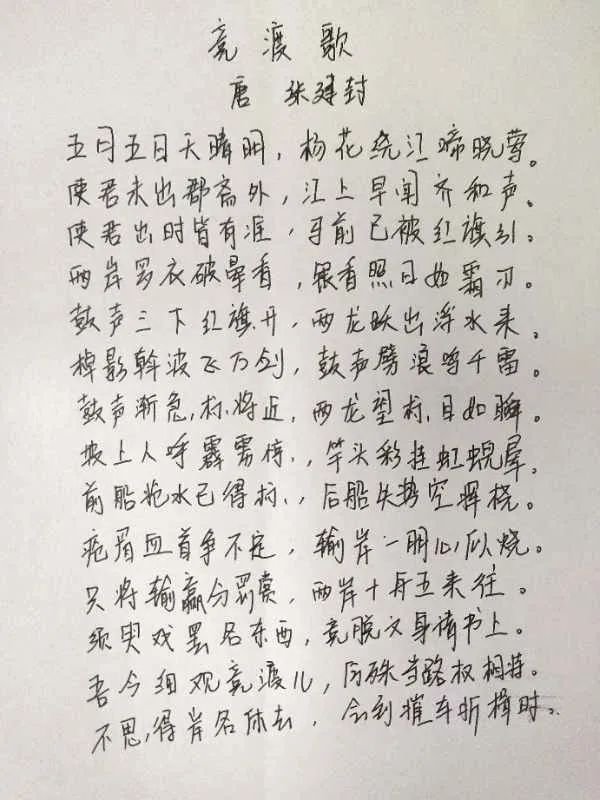 竞渡歌
唐 张建封
五月五日天晴明，杨花绕江啼晓莺。
使君未出郡斋外，江上早闻齐和声。
使君出时皆有准，马前已被红旗引。
两岸罗衣破晕香，银香照日如霜刃。
鼓声三下红旗开，两龙跃出浮水来。
棹影斡波飞万剑，鼓声劈浪鸣千雷。
鼓声渐急标将近，两龙望标目如瞬。
坡上人呼霹雳惊，竿头彩挂虹蜺晕。
前船抢水已得标，后船失势空挥桡。
疮眉血首争不定，输岸一朋心似烧。
只将输赢分罚赏，两岸十舟五来往。
须臾戏罢各东西，竞脱文身请书上。
吾今细观竞渡儿，何殊当路权相持。
不思得岸各休去，会到摧车折楫时。